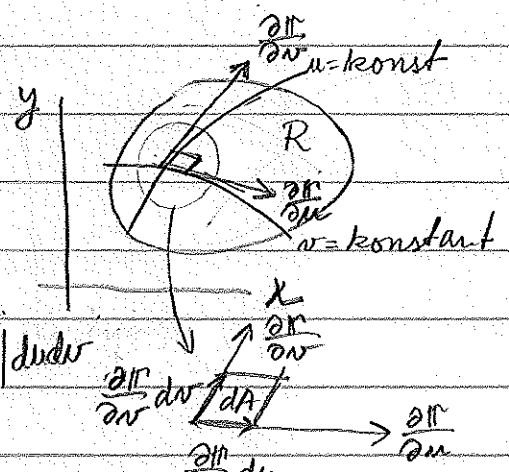 ∂𝐫/∂v
u=konst
y
R
∂𝐫/∂u
v=konstant
x
∂𝐫/∂v
|dudv
∂𝐫/∂v dv
dA
∂𝐫/∂u
∂𝐫/∂u du